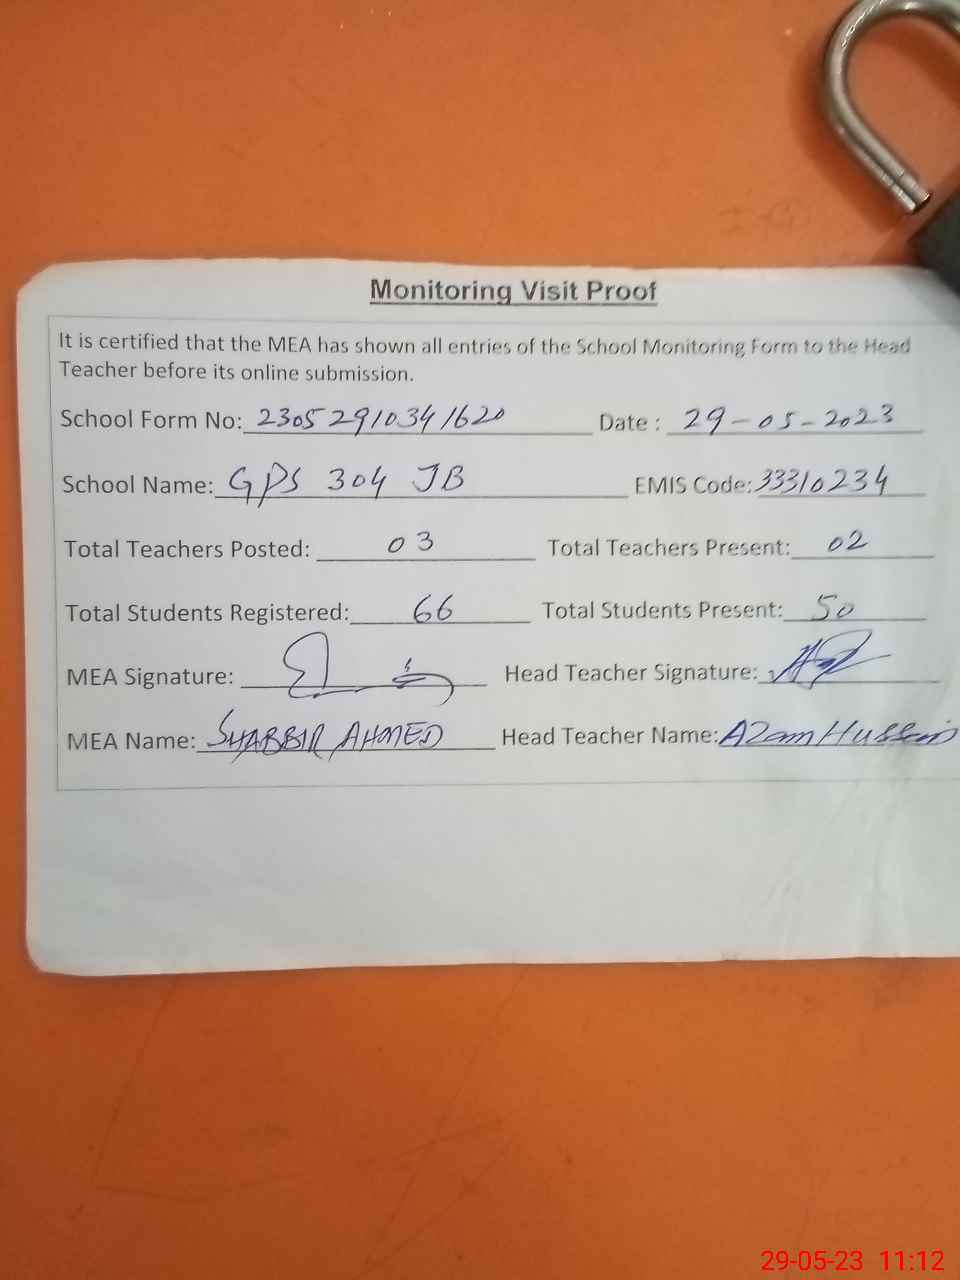 Monitoring Visit Proof
It is certified that the MEA has shown all entries of the School Monitoring Form to the Head
Teacher before its online submission.
School Form No: 23052910341620 Date : 29-05-2023
School Name: GPS 304 JB EMIS Code: 33310234
Total Teachers Posted: 03 Total Teachers Present: 02
Total Students Registered: 66 Total Students Present: 50
MEA Signature: Head Teacher Signature:
MEA Name: SHABBIR AHMED Head Teacher Name: Azam Hussain
29-05-23 11:12